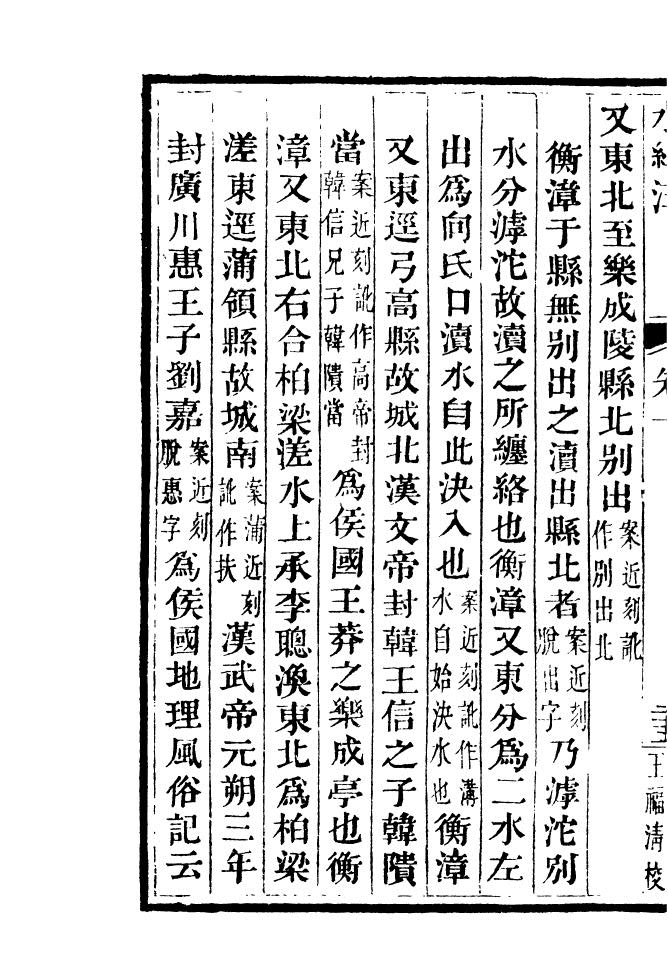 又東北至樂成陵縣北别出案近刻訛作別出北
衡漳于縣無别出之瀆出縣北者案近刻脫出字乃滹沱别
水分滹沱故瀆之所纏絡也衡漳又東分爲二水左
出爲向氏口瀆水自此決入也案近刻訛作溝水自始決水也衡漳
又東逕弓高縣故城北漢文帝封韓王信之子韓隤
當案近刻訛作高帝封韓信兄子韓隤當爲侯國王莽之樂成亭也衡
漳又東北右合柏梁溠水上承李聰渙東北爲柏梁
溠東逕蒲領縣故城南案蒲近刻訛作扶漢武帝元朔三年
封廣川惠王子劉嘉案近刻脫惠字爲侯國地理風俗記云
王福清校